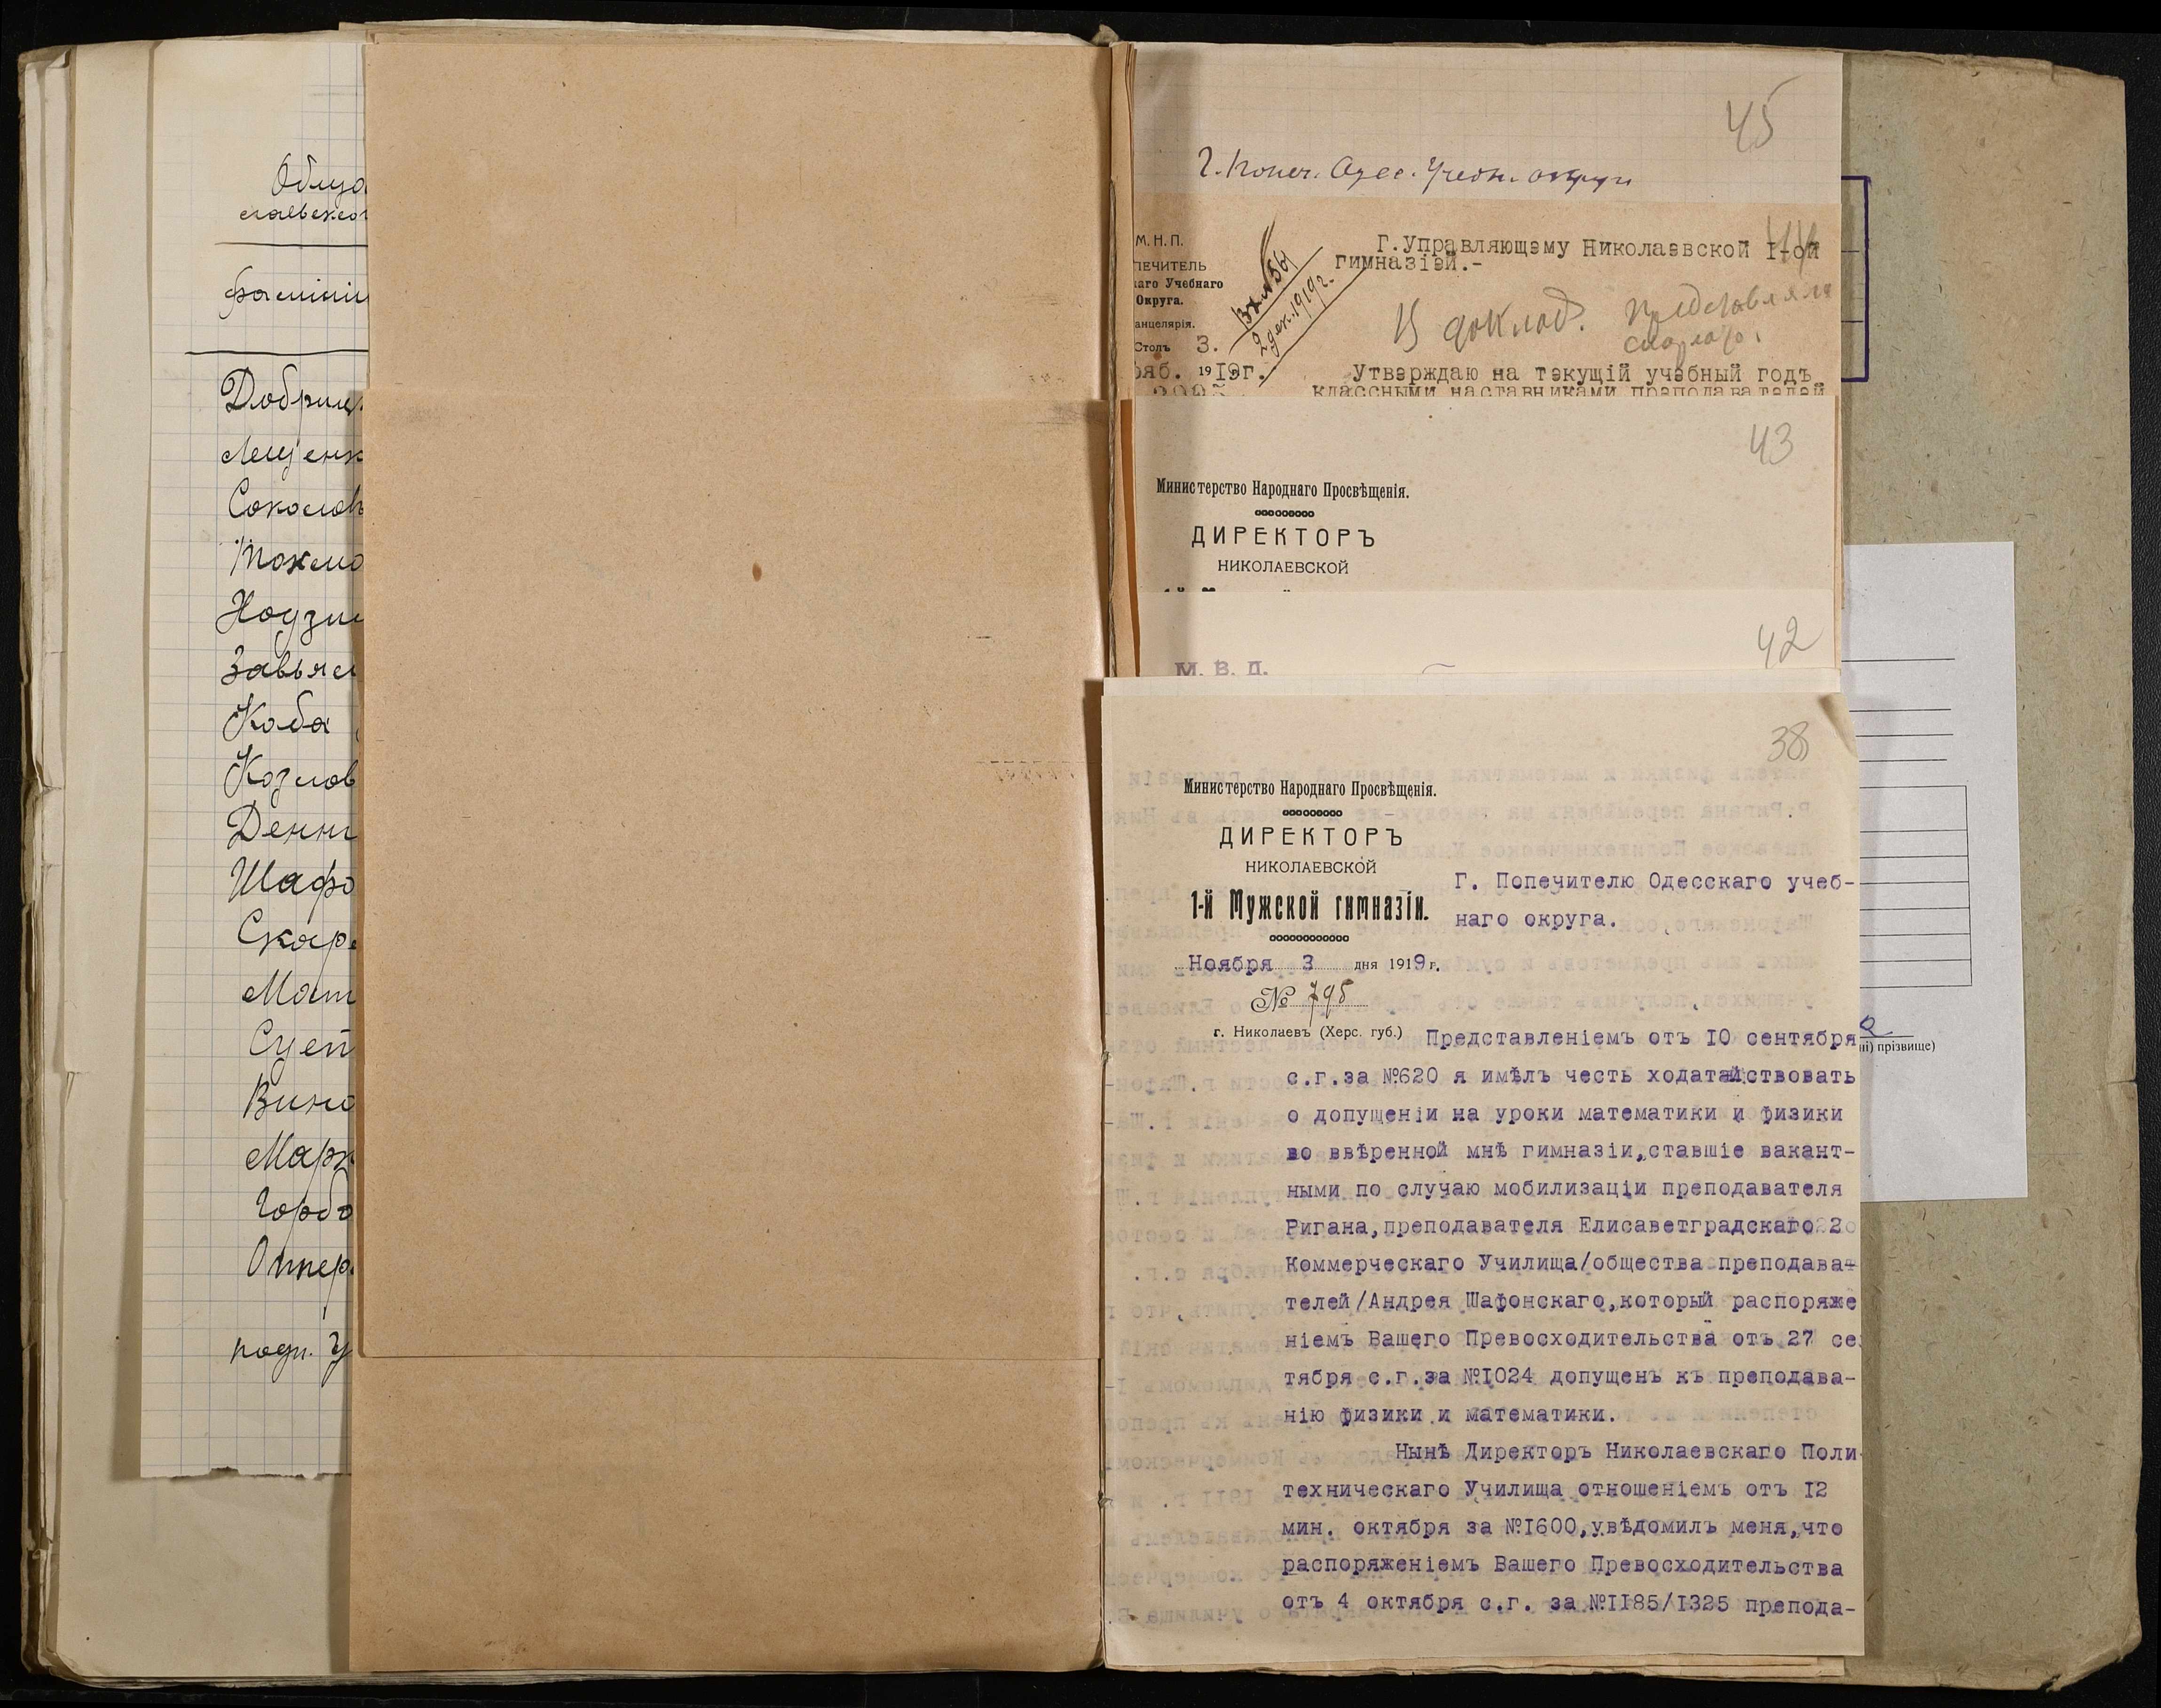 Фамилі
Лещенк
Соколов
Завьял
Каба
Козлов
Денни
Шафо
Скар
Мат
Суеп
Вино
Марк
Горбо
подп. У
45
Г. Попеч. Одес. Учебн. округа
М. Н. П.
ПЕЧИТЕЛЬ
каго Учебнаго
Округа.
анцелярія.
Столъ 3.
ояб. 1919г.
2 дек. 1919 г.
Г.Управляющему Николаевской I-ой
гимназіей.-
44
К доклад.
Утверждаю на текущій учебный годъ
классными наставниками преподавателей
43
Министерство Народнаго Просвѣщенія.
ДИРЕКТОРЪ
НИКОЛАЕВСКОЙ
42
М. В. Д.
38
Министерство Народнаго Просвѣщенія.
ДИРЕКТОРЪ
НИКОЛАЕВСКОЙ
1-й Мужской гимназіи.
Ноября 3 дня 1919 г.
№ 795
г. Николаевъ (Херс. губ.)
Г. Попечителю Одесскаго учеб-
наго округа.
Представленіемъ отъ IO сентября
с.г.за №620 я имѣлъ честь ходатайствовать
о допущеніи на уроки математики и физики
во ввѣренной мнѣ гимназіи,ставшіе вакант-
ными по случаю мобилизаціи преподавателя
Ригана,преподавателя Елисаветградскаго 2
Коммерческаго Училища/общества преподава-
телей/Андрея Шафонскаго,который распоряже
ніемъ Вашего Превосходительства отъ 27 се
тября с.г.за №I024 допущенъ къ преподава-
нію физики и математики.
Нынѣ Директоръ Николаевскаго Поли
техническаго Училища отношеніемъ отъ I2
мин. октября за №I600,увѣдомилъ меня,что
распоряженіемъ Вашего Превосходительства
отъ 4 октября с.г. за №II85/I325 препода-
ні) прізвище)